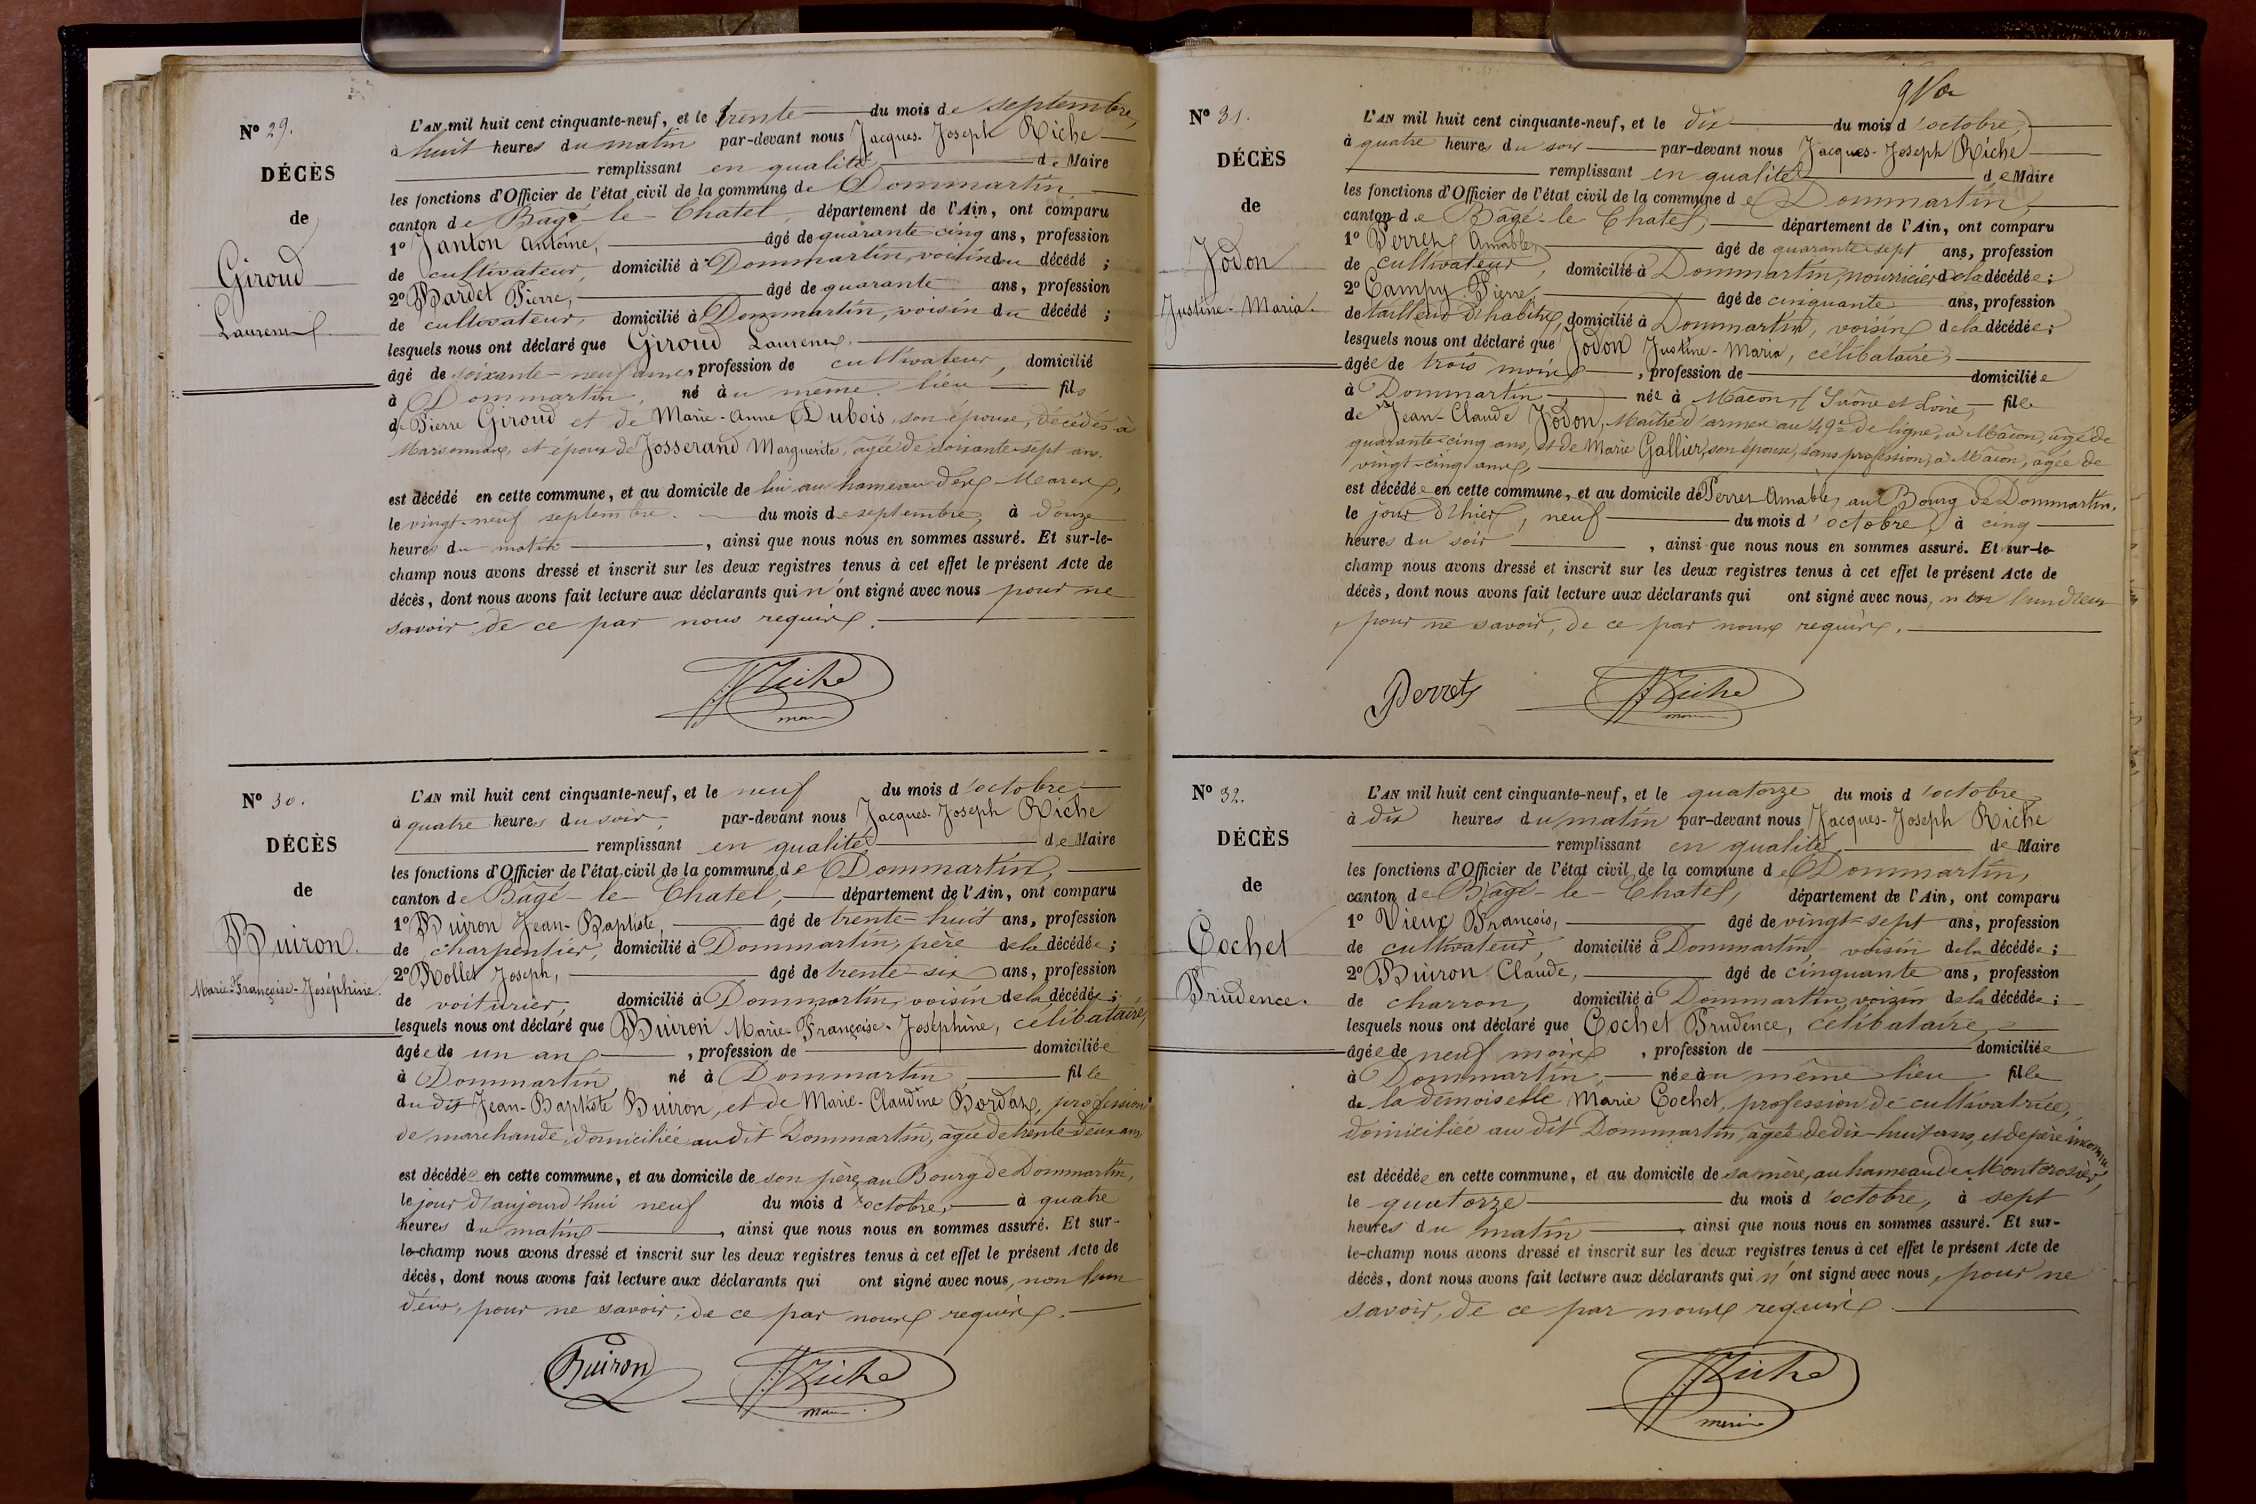 N° 29.
DÉCÈS
de
Giroud
Laurent
L'AN mil huit cent cinquante-neuf, et le trente du mois de septembre,
à huit heures du matin par-devant nous Jacques-Joseph Riche
remplissant en qualité de Maire
les fonctions d'Officier de l'état civil de la commune de Dommartin
canton de Bagé-le-Chatel, département de l'Ain, ont comparu
1° Janton Antoine, âgé de quarante-cinq ans, profession
de cultivateur, domicilié à Dommartin, voisin du décédé ;
2° Bardet Pierre, âgé de quarante ans, profession
de cultivateur, domicilié à Dommartin, voisin du décédé ;
lesquels nous ont déclaré que Giroud Laurent,
âgé de soixante-neuf ans, profession de cultivateur, domicilié
à Dommartin, né au même lieu fils
de Pierre Giroud et de Marie-Anne Dubois, son épouse, décédés à
et époux de Josserand Marguerite, âgée de soixante-sept ans.
est décédé en cette commune, et au domicile de lui au hameau des
le vingt-neuf septembre. du mois de septembre, à douze
heures du matin, ainsi que nous nous en sommes assuré. Et sur-le-
champ nous avons dressé et inscrit sur les deux registres tenus à cet effet le présent Acte de
décès, dont nous avons fait lecture aux déclarants qui n'ont signé avec nous pour ne
savoir de ce par nous requis.
JJ Riche
maire
N° 30.
DÉCÈS
de
Buiron.
Marie-Françoise-Joséphine.
L'AN mil huit cent cinquante-neuf, et le neuf du mois d'octobre
à quatre heures du soir, par-devant nous Jacques-Joseph Riche
remplissant en qualité de Maire
les fonctions d'Officier de l'état civil de la commune de Dommartin,
canton de Bâgé-le-Chatel, département de l'Ain, ont comparu
1° Buiron Jean-Baptiste, âgé de trente-huit ans, profession
de charpentier, domicilié à Dommartin, père de la décédée ;
2° Rollet Joseph, âgé de trente-six ans, profession
de voiturier, domicilié à Dommartin, voisin de la décédée ;
lesquels nous ont déclaré que Buiron Marie-Françoise-Joséphine, célibataire,
âgée de un an, profession de domiciliée
à Dommartin, né à Dommartin fille
du dit Jean-Baptiste Buiron, et de Marie-Claudine Bordat, profession
de marchande, domiciliée au dit Dommartin, âgée de trente-deux ans,
est décédée en cette commune, et au domicile de son père, au Bourg de Dommartin,
le jour d'aujourd'hui neuf du mois d'octobre, à quatre
heures du matin, ainsi que nous nous en sommes assuré. Et sur-
le-champ nous avons dressé et inscrit sur les deux registres tenus à cet effet le présent Acte de
décès, dont nous avons fait lecture aux déclarants qui ont signé avec nous, non l'un
d'eux, pour ne savoir, de ce par nous requis.
Buiron JJ Riche
maire
N° 31.
DÉCÈS
de
Jodon
Justine-Maria.
L'AN mil huit cent cinquante-neuf, et le dix du mois d'octobre,
à quatre heures du soir par-devant nous Jacques-Joseph Riche
remplissant en qualité de Maire
les fonctions d'Officier de l'état civil de la commune de Dommartin,
canton de Bâgé-le-Chatel, département de l'Ain, ont comparu
1° Perret Amable, âgé de quarante-sept ans, profession
de cultivateur, domicilié à Dommartin, nourricier de la décédée ;
2° Campy Pierre, âgé de cinquante ans, profession
de tailleur d'habits, domicilié à Dommartin, voisin de la décédée ;
lesquels nous ont déclaré que Jodon Justine-Maria, célibataire
âgée de trois mois, profession de domiciliée
à Dommartin née à Macon, (Saône et Loire, fille
de Jean-Claude Jodon, Maître d'armes au 49e de ligne, à Mâcon, âgé de
quarante-cinq ans, et de Marie Gallier, son épouse, sans profession, à Mâcon, âgée de
vingt-cinq ans,
est décédée en cette commune, et au domicile de Perret Amable, au Bourg de Dommartin.
le jour d'hier, neuf du mois d'octobre, à cinq
heures du soir, ainsi que nous nous en sommes assuré. Et sur-le-
champ nous avons dressé et inscrit sur les deux registres tenus à cet effet le présent Acte de
décès, dont nous avons fait lecture aux déclarants qui ont signé avec nous, non l'un d'eux
pour ne savoir, de ce par nous requis.
Perret JJ Riche
maire
N° 32.
DÉCÈS
de
Cochet
Prudence.
L'AN mil huit cent cinquante-neuf, et le quatorze du mois d'octobre,
à dix heures du matin par-devant nous Jacques-Joseph Riche
remplissant en qualité de Maire
les fonctions d'Officier de l'état civil de la commune de Dommartin,
canton de Bâgé-le-Chatel, département de l'Ain, ont comparu
1° Vieux François, âgé de vingt-sept ans, profession
de cultivateur, domicilié à Dommartin, voisin de la décédée ;
2° Buiron Claude, âgé de cinquante ans, profession
de charron, domicilié à Dommartin, voisin de la décédée ;
lesquels nous ont déclaré que Cochet Prudence, célibataire,
âgée de neuf mois, profession de domiciliée
à Dommartin, née au même lieu fille
de la demoiselle Marie Cochet, profession de cultivatrice,
domiciliée au dit Dommartin, âgée de dix-huit ans, et de père inconnu,
est décédée en cette commune, et au domicile de sa mère, au hameau de Montcrosier,
le quatorze du mois d'octobre, à sept
heures du matin, ainsi que nous nous en sommes assuré. Et sur-
le-champ nous avons dressé et inscrit sur les deux registres tenus à cet effet le présent Acte de
décès, dont nous avons fait lecture aux déclarants qui n'ont signé avec nous, pour ne
savoir, de ce par nous requis
JJ Riche
maire